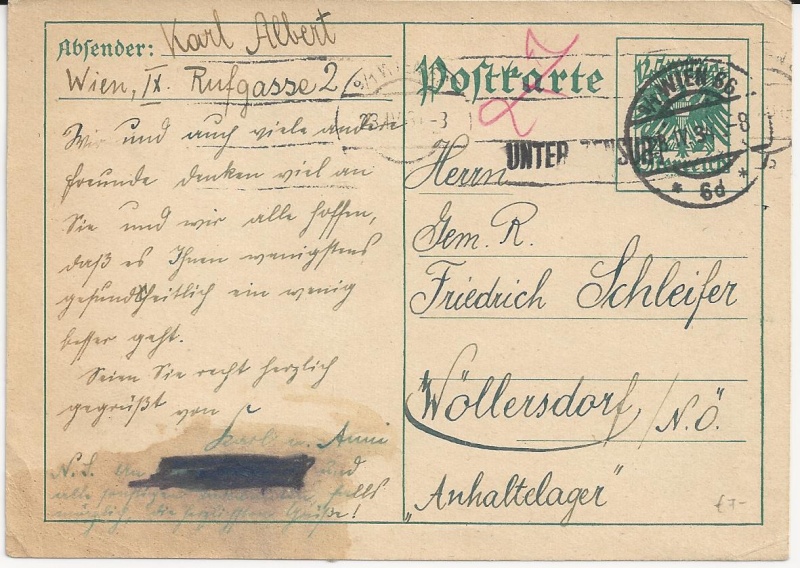 Absender: Karl Albert
Wien, IX. Rufgasse 2/
Wir und auch viele andere
Freunde denken viel an
Sie und wir alle hoffen,
daß es Ihnen wenigstens
gesundheitlich ein wenig
besser geht.
Seien Sie recht herzlich
gegrüßt von
Karl u. Anni
N.S. An und
alle falls
möglich, die herzlichsten Grüße!
Postkarte
UNTER ZENSUR
WIEN 66
6d
Herrn
Gem. R.
Friedrich Schleifer
Wöllersdorf, N.Ö.
"Anhaltelager"
£7-